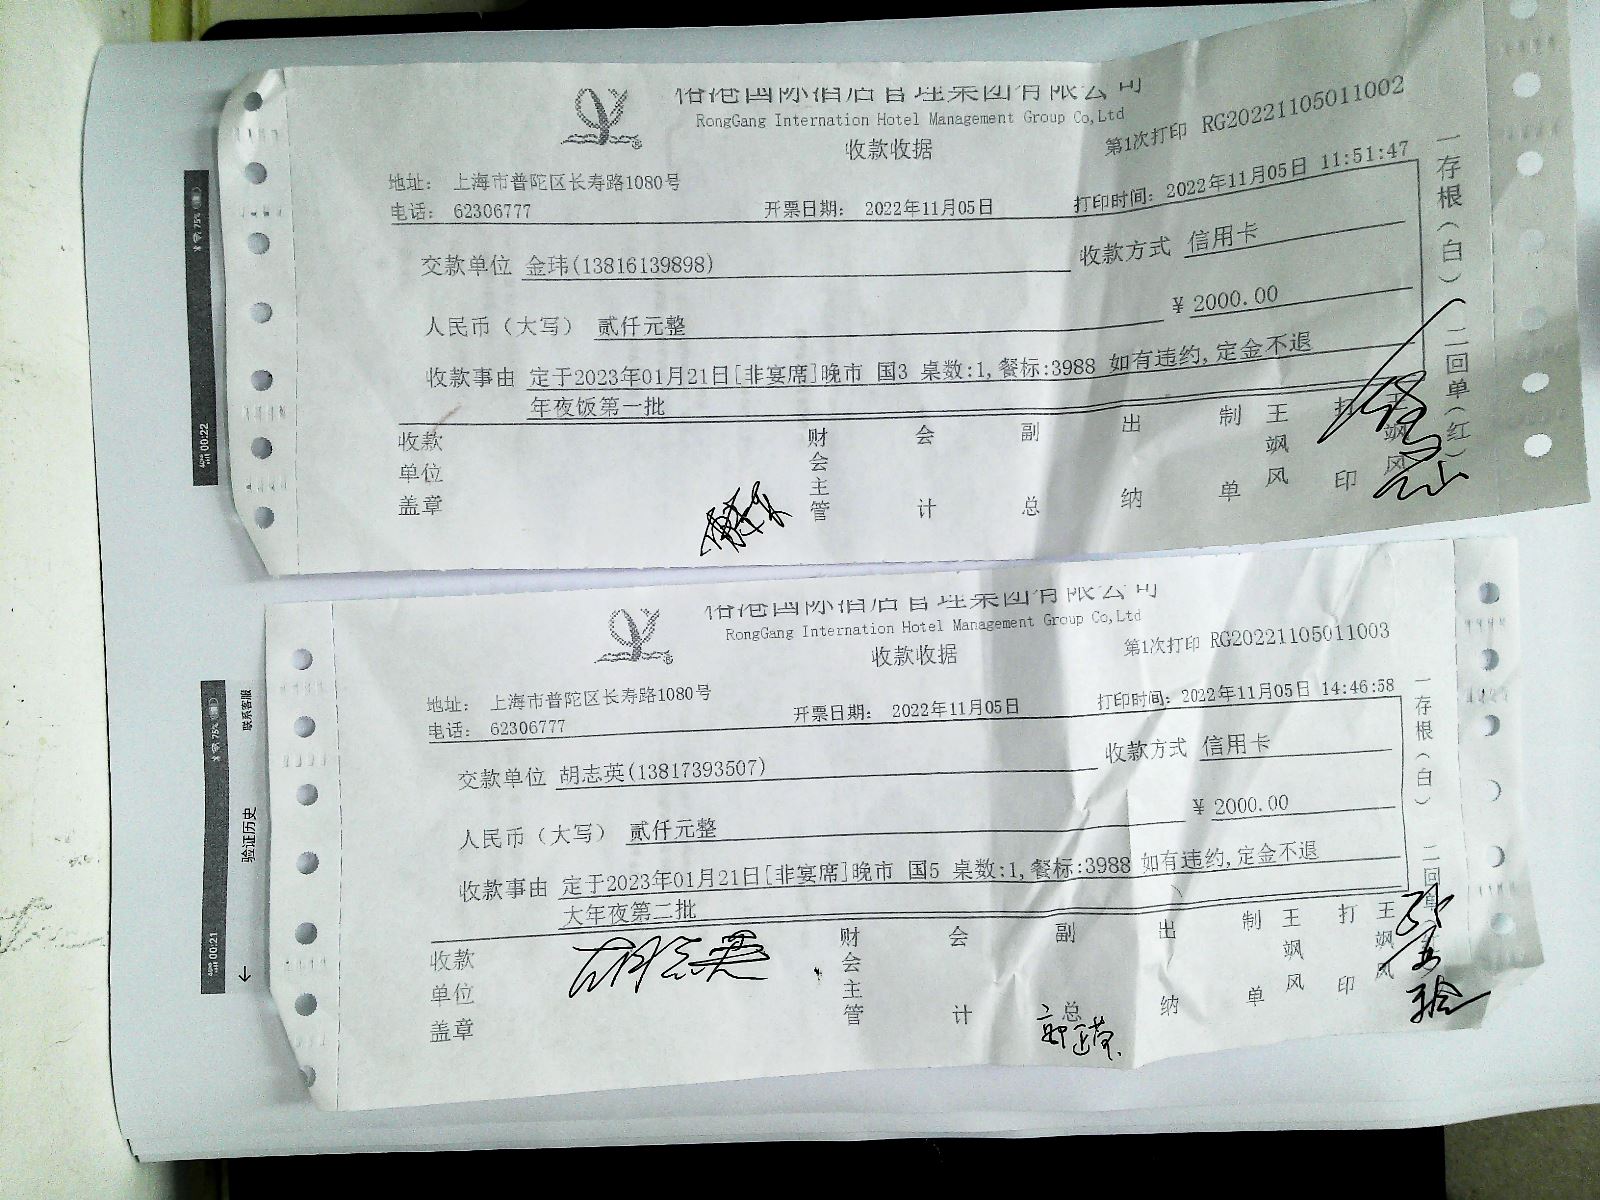 国际酒店管理集团有限公司
RongGang Internation Hotel Management Group Co,Ltd
收款收据
第1次打印 RG20221105011002
地址: 上海市普陀区长寿路1080号
电话: 62306777
开票日期: 2022年11月05日
打印时间: 2022年11月05日 11:51:47
交款单位 金玮(13816139898)
收款方式 信用卡
人民币（大写） 贰仟元整
¥ 2000.00
收款事由 定于2023年01月21日[非宴席]晚市 国3 桌数:1,餐标:3988 如有违约,定金不退
年夜饭第一批
收款单位盖章
财会主管
会计
副总
出纳
制单
王飒风
打印
王飒风
一存根（白）
二回单（红）
国际酒店管理集团有限公司
RongGang Internation Hotel Management Group Co,Ltd
收款收据
第1次打印 RG20221105011003
地址: 上海市普陀区长寿路1080号
电话: 62306777
开票日期: 2022年11月05日
打印时间: 2022年11月05日 14:46:58
交款单位 胡志英(13817393507)
收款方式 信用卡
人民币（大写） 贰仟元整
¥ 2000.00
收款事由 定于2023年01月21日[非宴席]晚市 国5 桌数:1,餐标:3988 如有违约,定金不退
大年夜第二批
收款单位盖章
胡志英
财会主管
会计
副总
出纳
制单
王飒风
打印
王飒风
一存根（白）
二回单
75%
00:22
75%
00:21
← 验证历史 联系客服